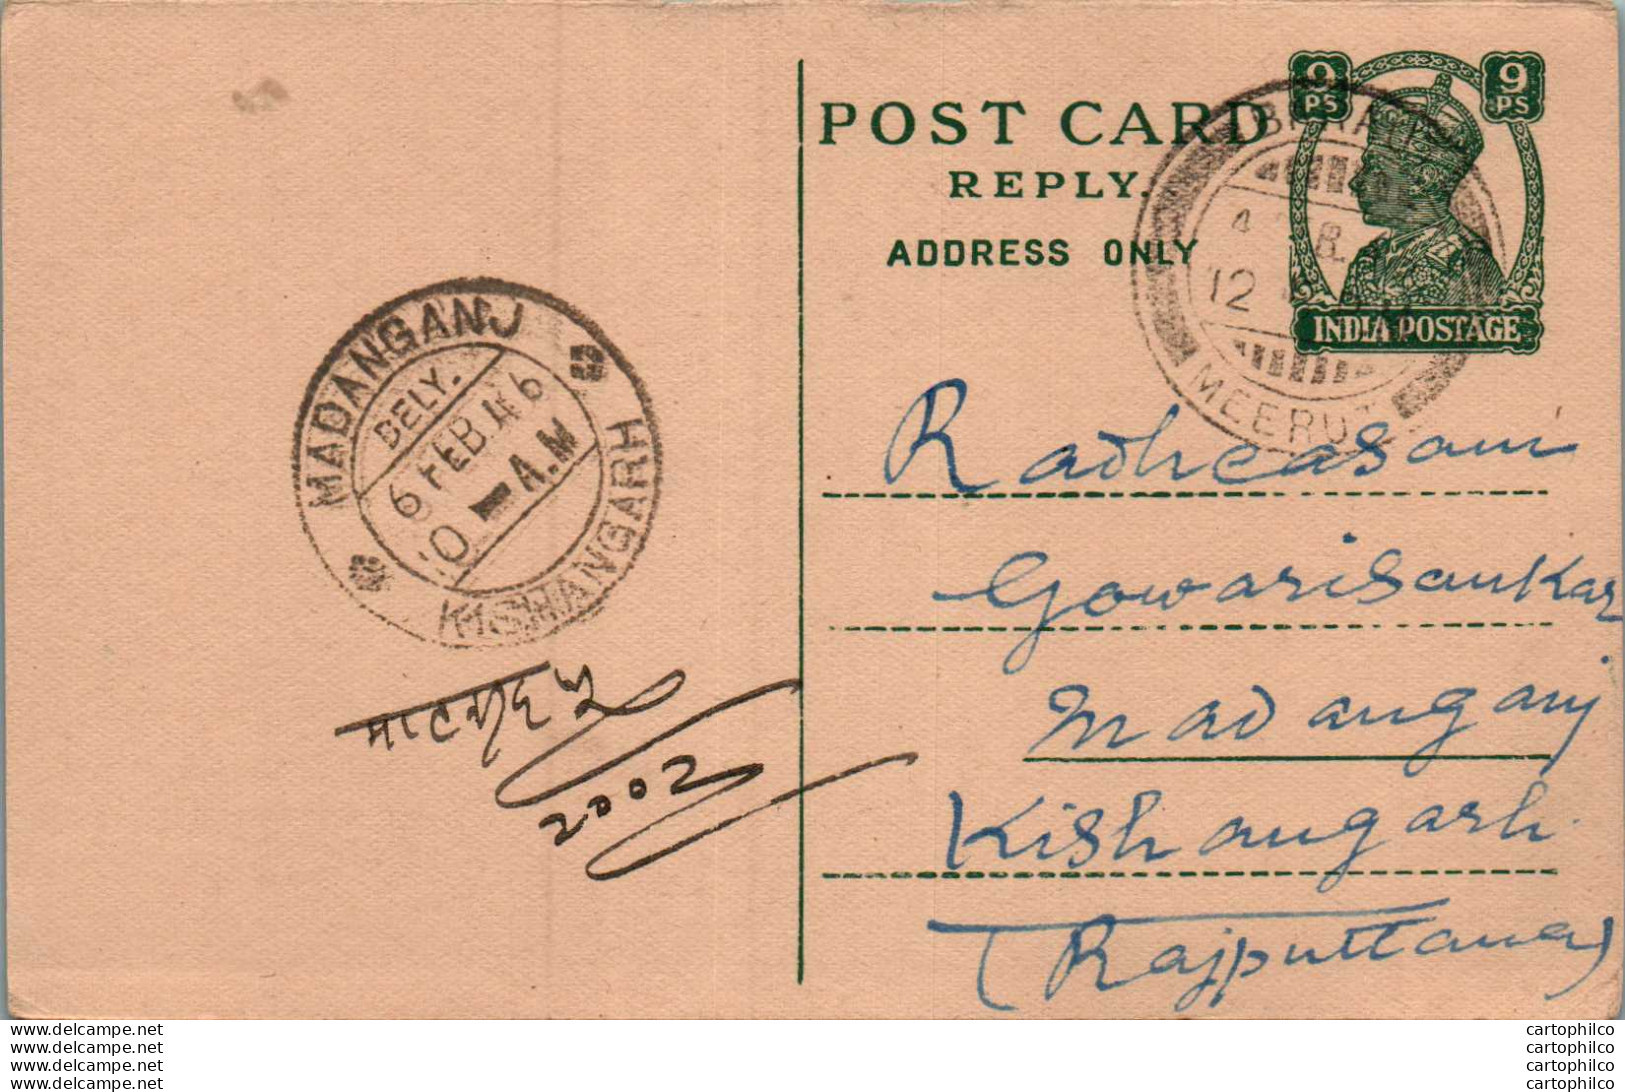 9 PS 9 PS
POST CARD
REPLY.
ADDRESS ONLY
INDIA POSTAGE
MEERUT
12
MADANGANJ
DELY.
6 FEB. 46
10 A.M
KISHANGARH
2002
Radheasam
Gowarisankar
Madanganj
Kishangarh
(Rajputtana)
www.delcampe.net
www.delcampe.net
www.delcampe.net
www.delcampe.net
cartophilco
cartophilco
cartophilco
cartophilco